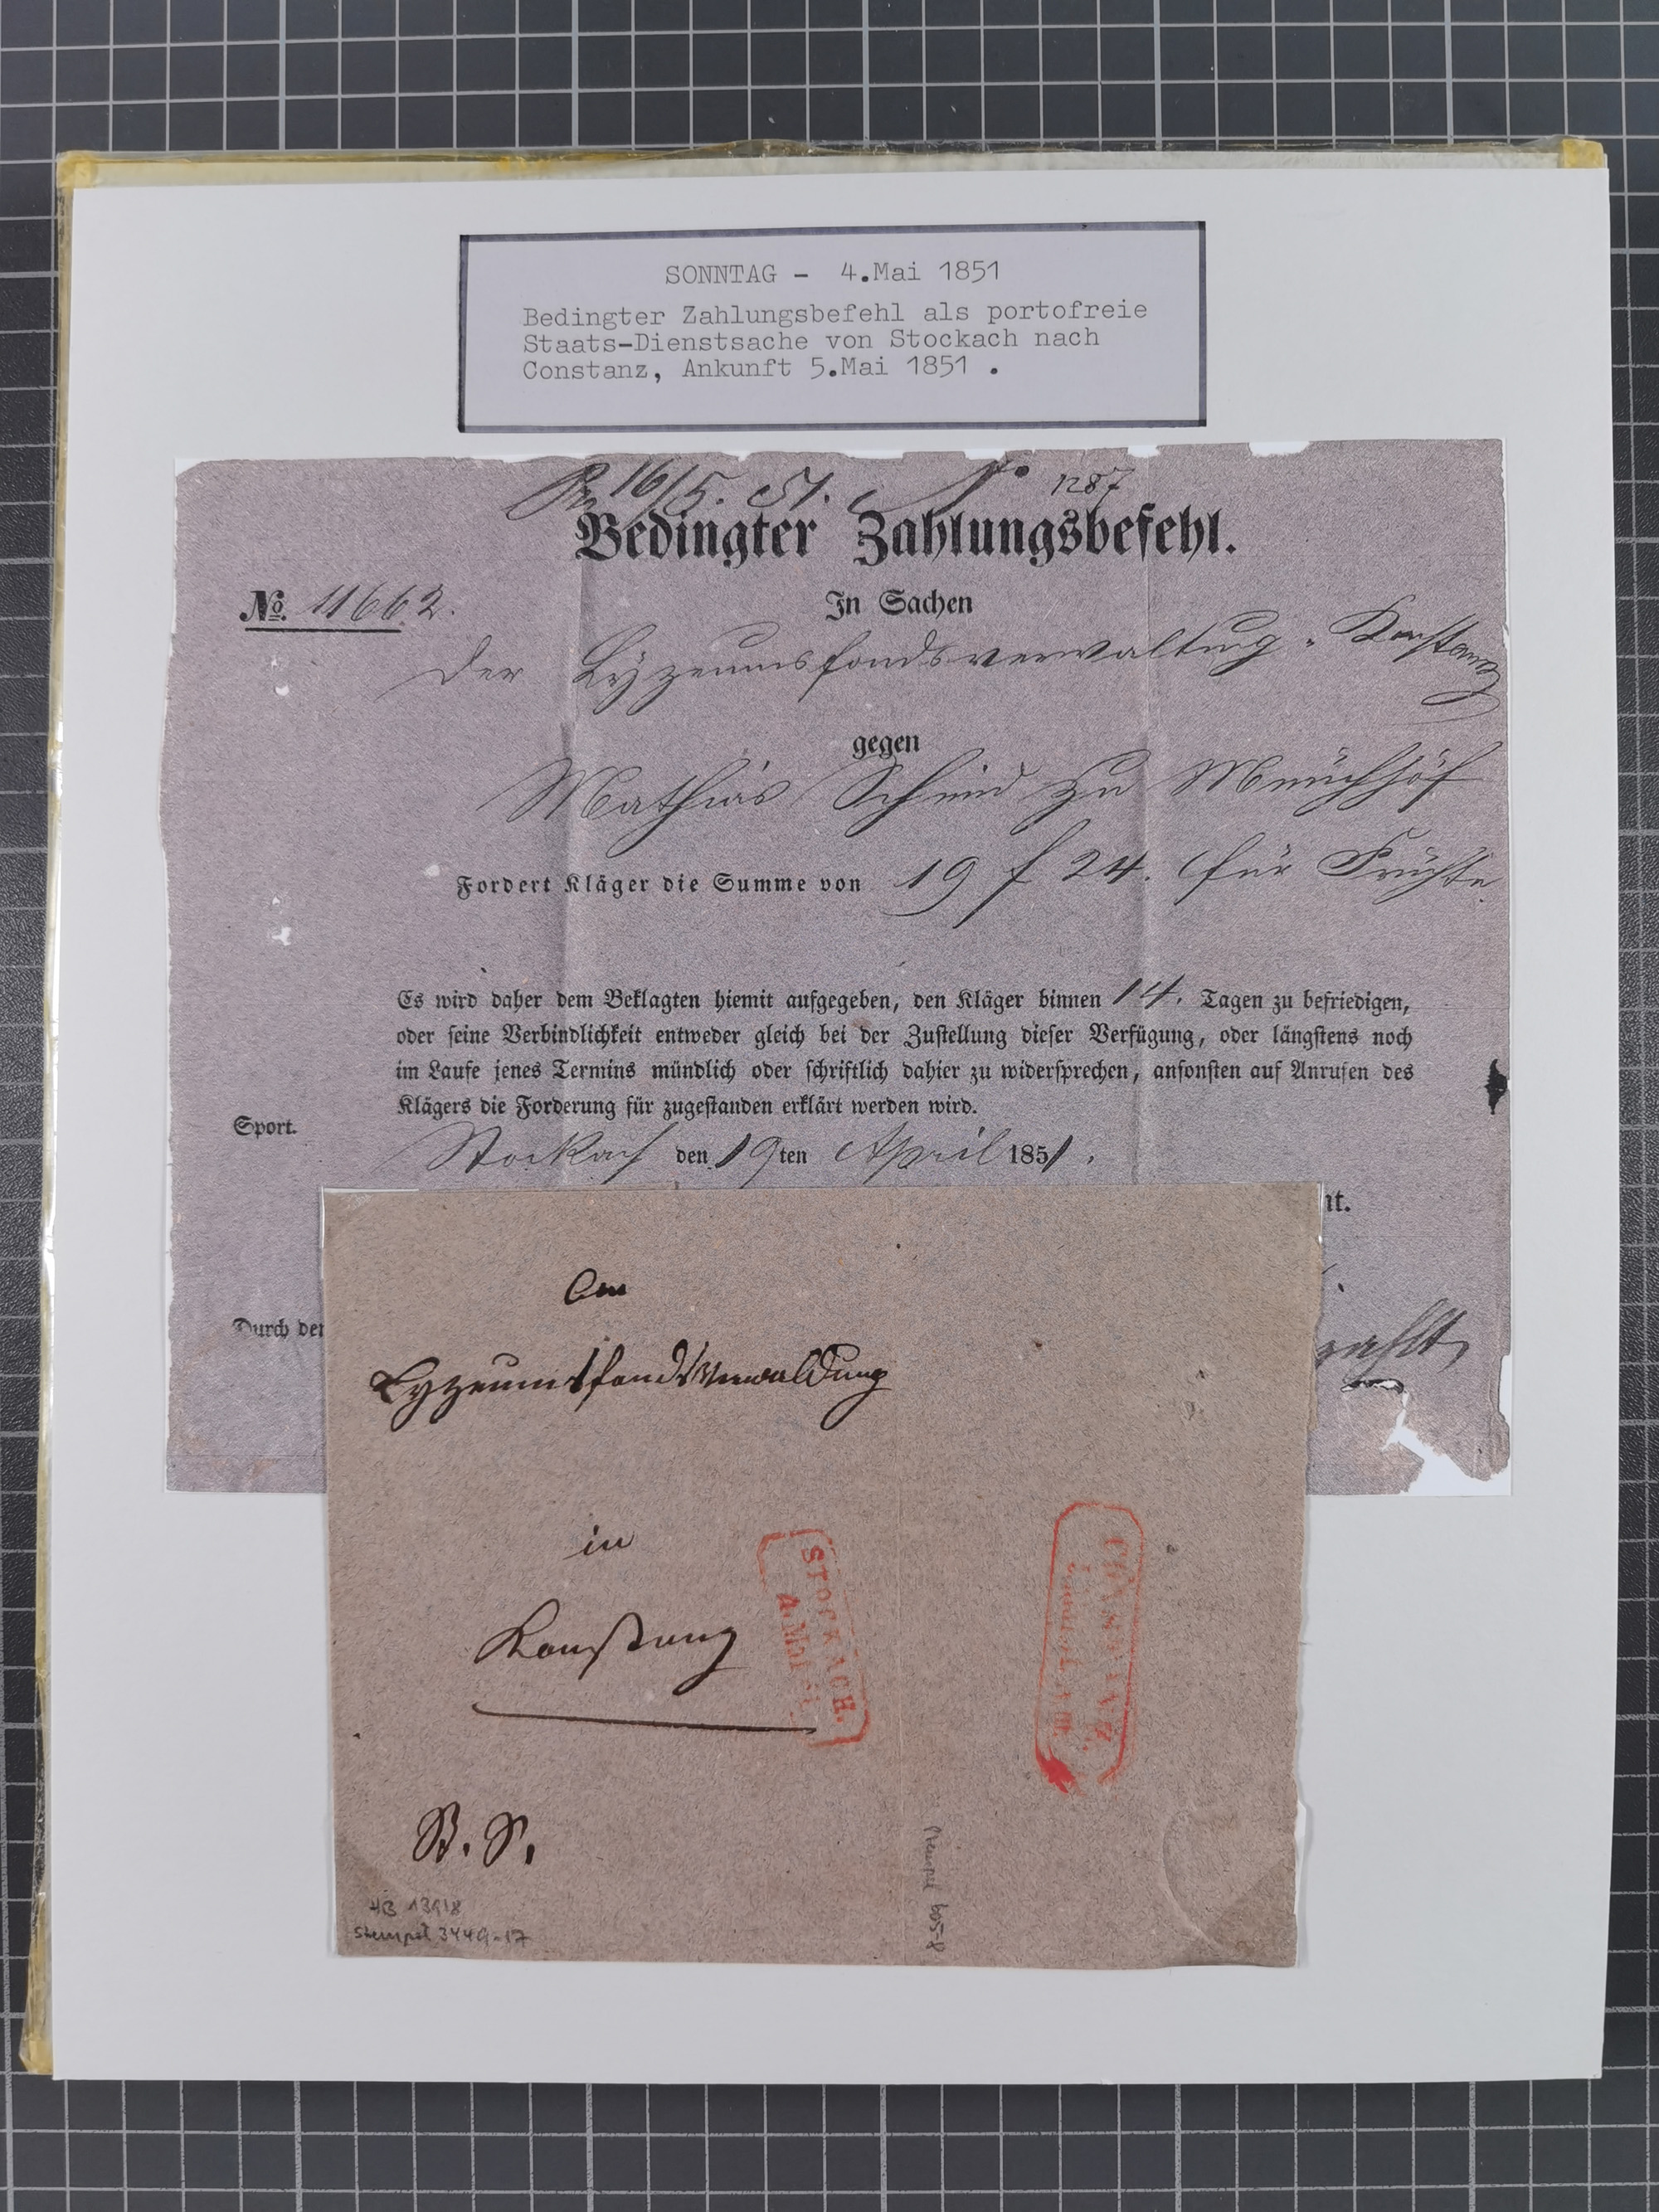 SONNTAG - 4.Mai 1851
Bedingter Zahlungsbefehl als portofreie
Staats-Dienstsache von Stockach nach
Constanz, Ankunft 5.Mai 1851 .
16/5. 51. 1287
Bedingter Zahlungsbefehl.
No. 11662.
In Sachen
der Lyzeumsfondsverwaltung Konstanz
gegen
Mathias Schmid zu Münchhöf
Fordert Kläger die Summe von 19 f 24. für Früchte
Es wird daher dem Beklagten hiemit aufgegeben, den Kläger binnen 14. Tagen zu befriedigen,
oder seine Verbindlichkeit entweder gleich bei der Zustellung dieser Verfügung, oder längstens noch
im Laufe jenes Termins mündlich oder schriftlich dahier zu widersprechen, ansonsten auf Anrufen des
Klägers die Forderung für zugestanden erklärt werden wird.
Sport.
Stockach den 19ten April 1851.
nt.
Durch der
An
Lyzeumsfondsverwaldung
in
Konstanz
STOCKACH.
4. Mai
CONSTANZ
S.
HB 13918
Stempel 3449-17
Stempel 605-8